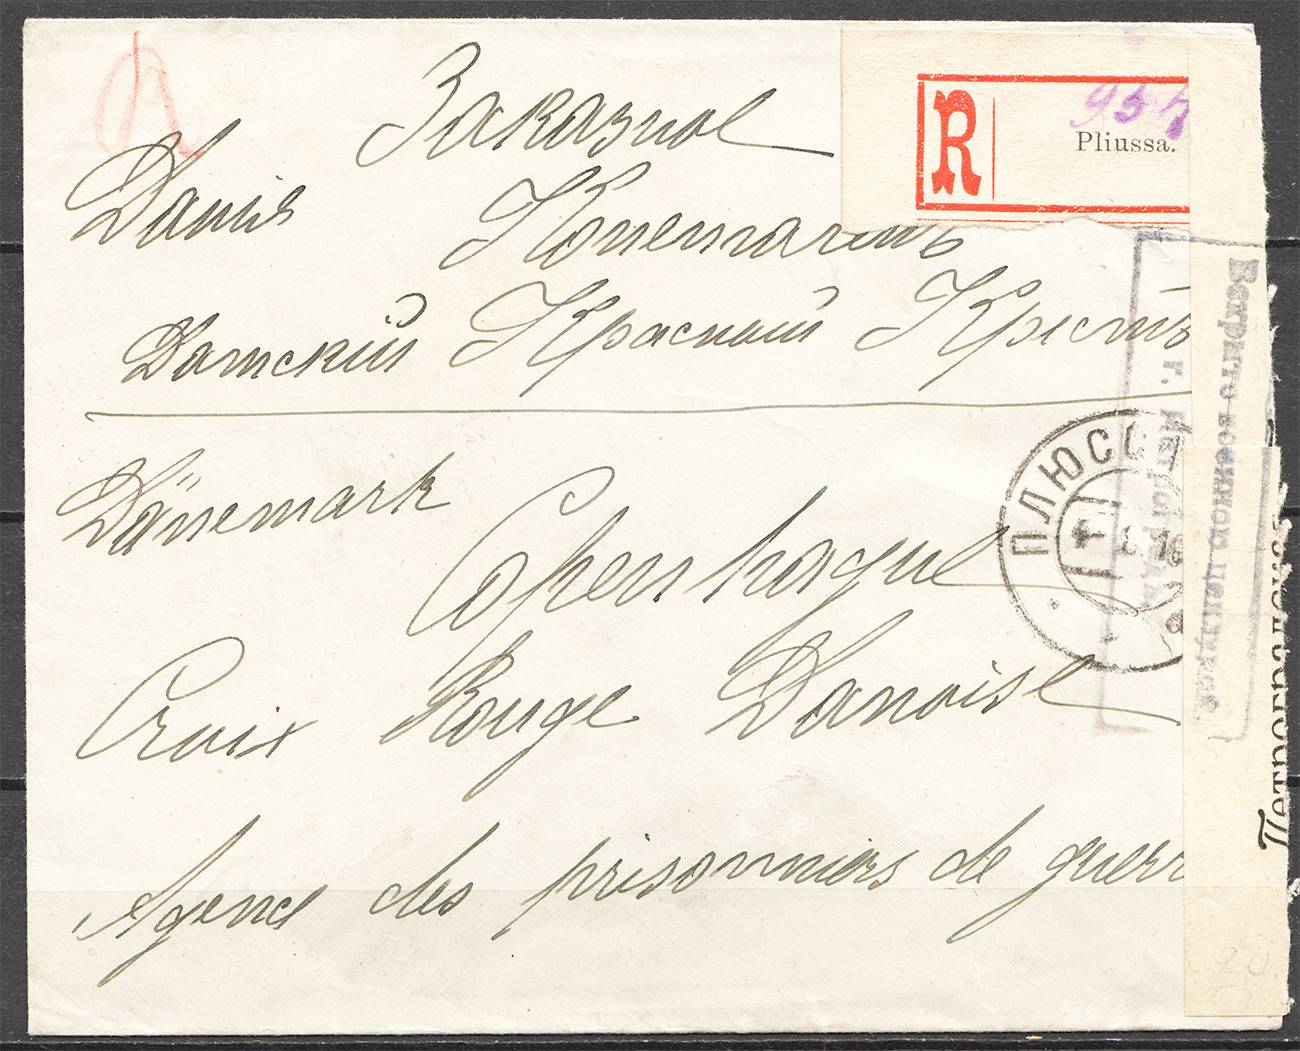 Заказное
R
954
Pliussa.
Данiя Копенгагенъ
Датскiй Красный Крестъ
Dänemark
Copenhague
Croix Rouge Danoise
Agence des prisonniers de guerr
ПЛЮССА
Вскрыто военной цензурой.
г. Петроградъ
Петроградская